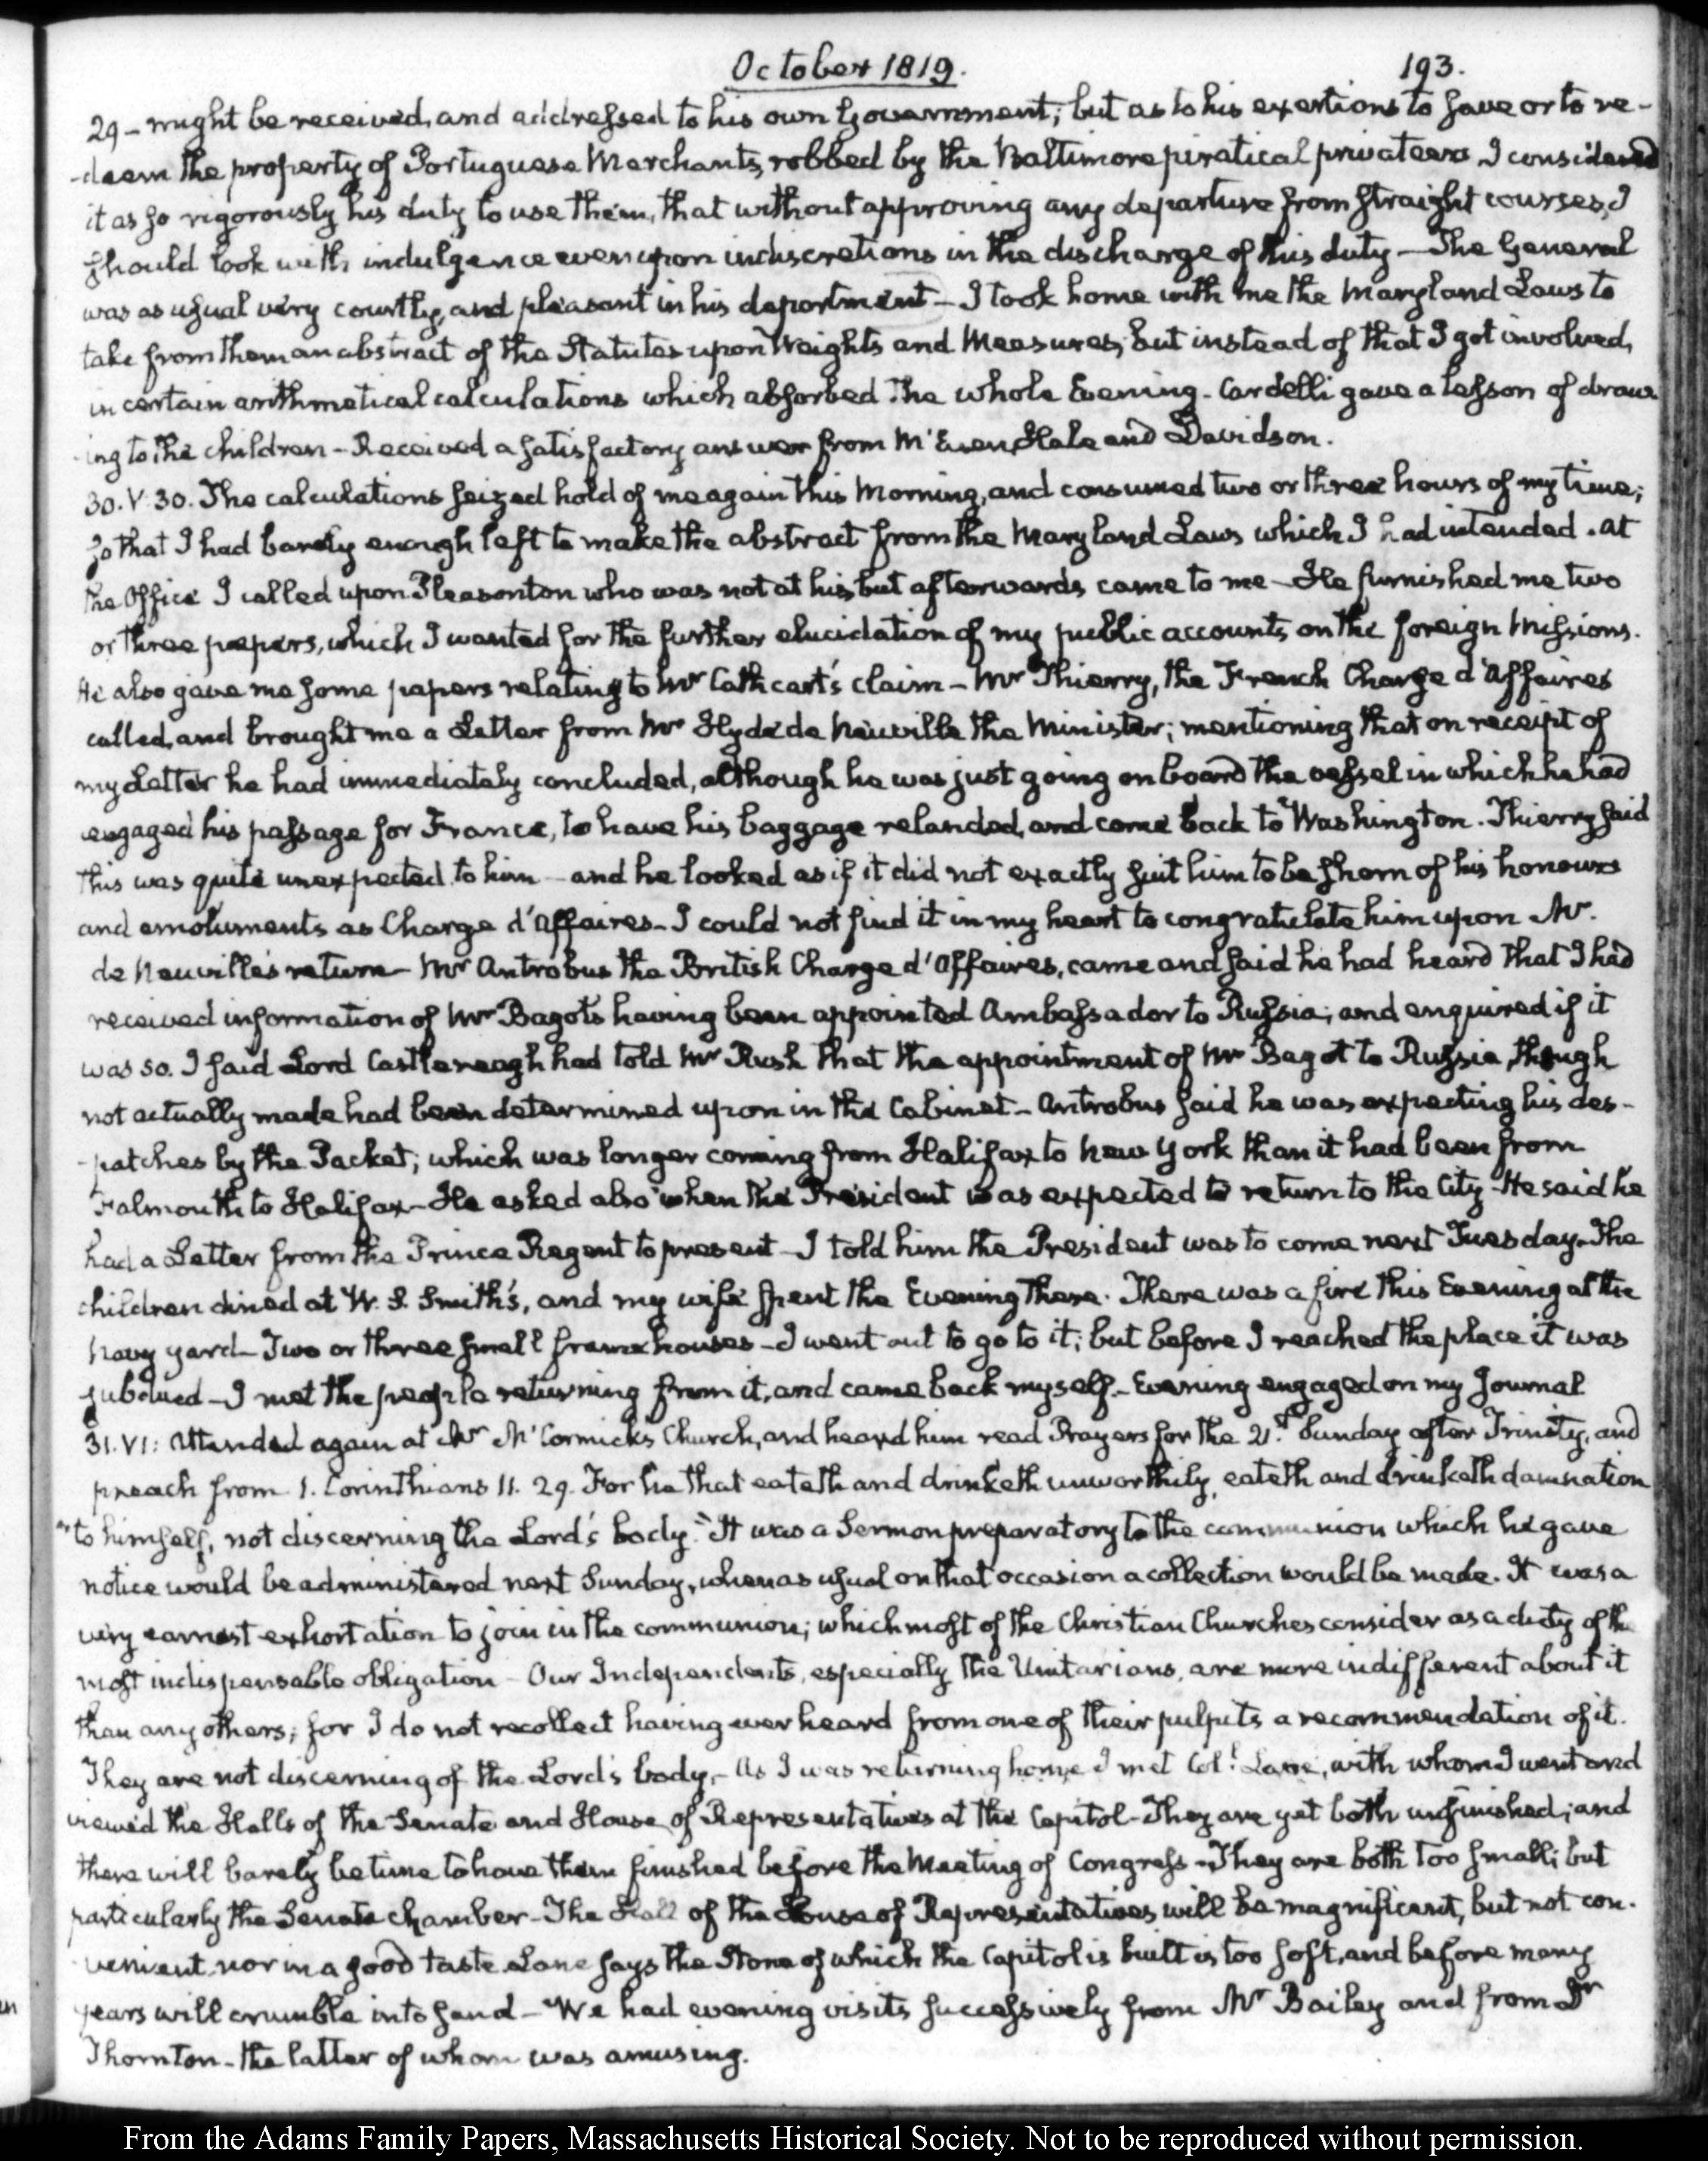 October 1819.
193.
29 - might be received, and addressed to his own Government; but as to his exertions to save or to re-
-deem the property of Portuguese Merchants, robbed by the Baltimore piratical privateers I considered
it as so rigorously his duty to use them, that without approving any departure from straight courses, I
should look with indulgence even upon indiscretions in the discharge of this duty - The General
was as usual very courtly, and pleasant in his deportment - I took home with me the Maryland Laws to
take from them an abstract of the Statutes upon Weights and Measures; but instead of that I got involved,
in certain arithmetical calculations which absorbed the whole Evening - Cardelli gave a lesson of draw
-ing to the children - Received a satisfactory answer from McEuen, Hale and Davidson.
30. V: 30. The calculations seized hold of me again this Morning, and consumed two or three hours of my time;
so that I had barely enough left to make the abstract from the Maryland Laws which I had intended. At
the Office I called upon Pleasonton who was not at his, but afterwards came to me - He furnished me two
or three papers, which I wanted for the further elucidation of my public accounts, on the foreign Missions.
He also gave me some papers relating to Mr Cathcart's claim - Mr Thierry, the French Charge d'Affaires
called, and brought me a Letter from Mr Hyde de Neuville the Minister; mentioning that on receipt of
my Letter he had immediately concluded, although he was just going on board the vessel in which he had
engaged his passage for France, to have his baggage relanded, and come back to Washington. Thierry said
this was quite unexpected to him - and he looked as if it did not exactly suit him to be shorn of his honours
and emoluments as Charge d'Affaires - I could not find it in my heart to congratulate him upon Mr.
de Neuville's return - Mr Antrobus the British Charge d'Affaires, came and said he had heard that I had
received information of Mr Bagot's having been appointed Ambassador to Russia; and enquired if it
was so. I said Lord Castlereagh had told Mr Rush that the appointment of Mr Bagot to Russia, though
not actually made had been determined upon in the Cabinet - Antrobus said he was expecting his des-
-patches by the Packet; which was longer coming from Halifax to New York than it had been from
Falmouth to Halifax - He asked also when the President was expected to return to the City - He said he
had a Letter from the Prince Regent to present - I told him the President was to come next Tuesday. The
children dined at W. S. Smith's, and my wife spent the Evening there. There was a fire this Evening at the
Navy yard - Two or three small frame houses - I went out to go to it; but before I reached the place it was
subdued - I met the people returning from it, and came back myself - Evening engaged on my Journal
31. VI: Attended again at Mr McCormick's Church, and heard him read Prayers for the 21.st Sunday after Trinity, and
preach from 1. Corinthians 11. 29. For he that eateth and drinketh unworthily, eateth and drinketh damnation
"to himself, not discerning the Lord's body." It was a Sermon preparatory to the communion which he gave
notice would be administered next Sunday, when as usual on that occasion a collection would be made. It was a
very earnest exhortation to join in the communion; which most of the Christian Churches consider as a duty of the
most indispensable obligation - Our Independents, especially the Unitarians, are more indifferent about it
than any others; for I do not recollect having ever heard from one of their pulpits a recommendation of it.
They are not discerning of the Lord's body. - As I was returning home I met Coll. Lane, with whom I went and
viewed the Halls of the Senate and House of Representatives at the Capitol - They are yet both unfinished; and
there will barely be time to have them finished before the Meeting of Congress - They are both too small; but
particularly the Senate chamber - The Hall of the House of Representatives will be magnificent, but not con-
-venient, nor in a good taste. Lane says the Stone of which the Capitol is built is too soft, and before many
years will crumble into sand - We had evening visits successively from Mr Bailey and from Dr
Thornton - the latter of whom was amusing.
From the Adams Family Papers, Massachusetts Historical Society. Not to be reproduced without permission.